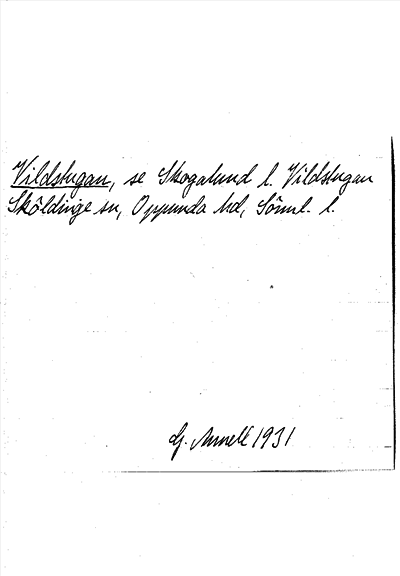 Vildstugan, se Skogalund l. Vildstugan
Sköldinge sn, Oppunda hd, Söml. l.
G. Annell 1931